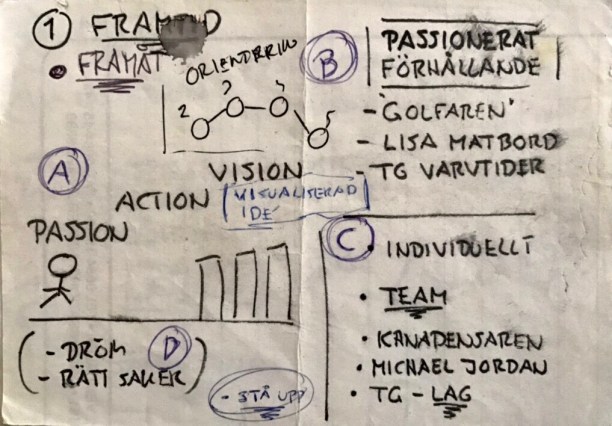 1 FRAMTID
• FRAMÅT
ORIENTERING
2 3 4 5
A
VISION
ACTION
VISUALISERAD
IDÉ
PASSION
D
- DRÖM
- RÄTT SAKER
- STÅ UPP
B
PASSIONERAT
FÖRHÅLLANDE
- "GOLFAREN"
- LISA MATBORD
- TG VARVTIDER
C
• INDIVIDUELLT
• TEAM
• KANADENSAREN
• MICHAEL JORDAN
• TG - LAG